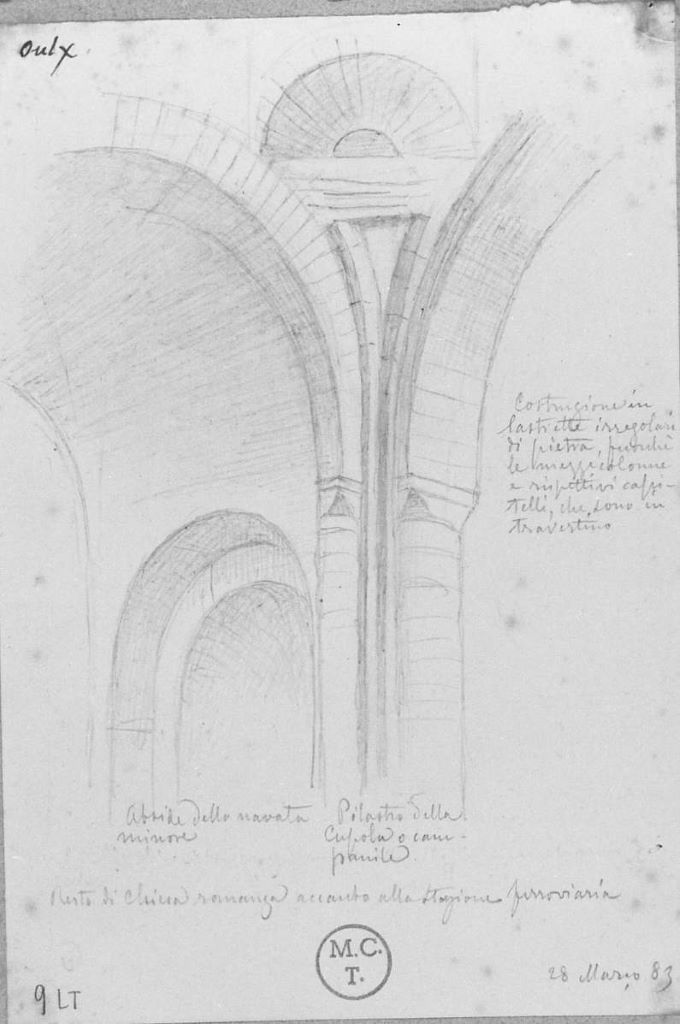 Oulx.
Costruzione in
lastrette irregolari
di pietra, fuorchè
le mezze colonne
e rispettivi capi-
telli, che sono in
travertino
Abside della navata
minore
Pilastro della
Cupola o cam-
panile.
Resto di chiesa romanza accanto alla stazione ferroviaria
28 Marzo 83
M.C.
T.
9 LT